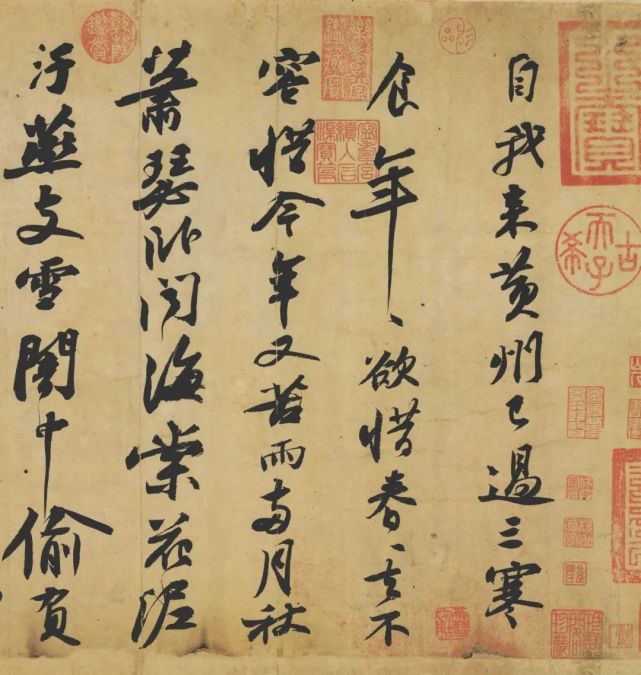 自我來黄州已過三寒
食年〻欲惜春〻去不
容惜今年又苦雨兩月秋
蕭瑟卧聞海棠花泥
汙燕支雪闇中偷負
古希天子